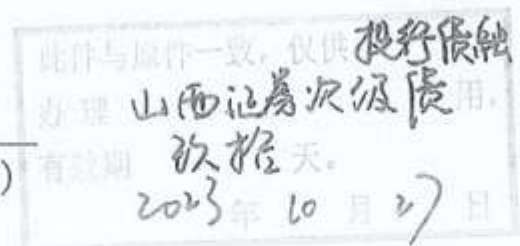 此件与原件一致，仅供投行债融
办理 山西证券次级债 用，
有效期 玖拾 天。
2023 年 10 月 27 日
)